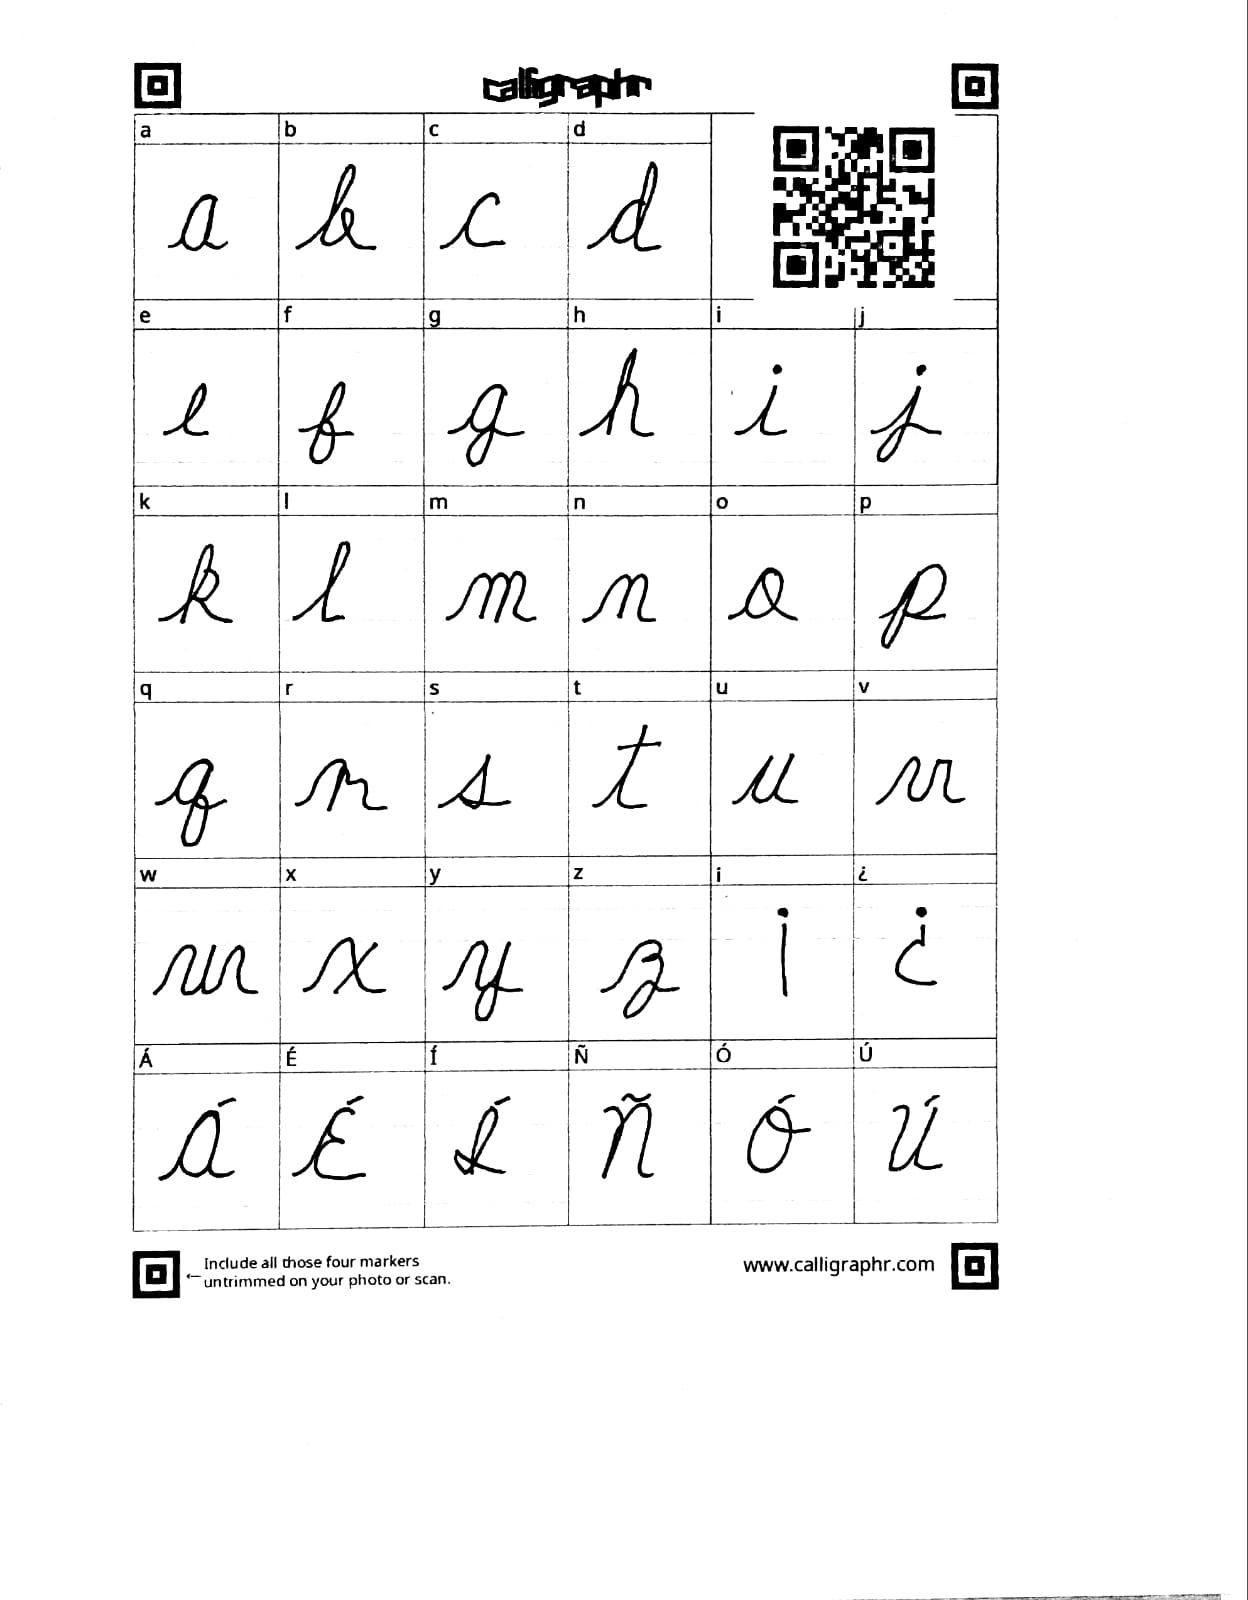 calligraphr
a b c d
a b c d
e f g h i j
e f g h i j
k l m n o p
k l m n o p
q r s t u v
q r s t u v
w x y z ¡ ¿
w x y z ¡ ¿
Á É Í Ñ Ó Ú
Á É Í Ñ Ó Ú
Include all those four markers
← untrimmed on your photo or scan.
www.calligraphr.com